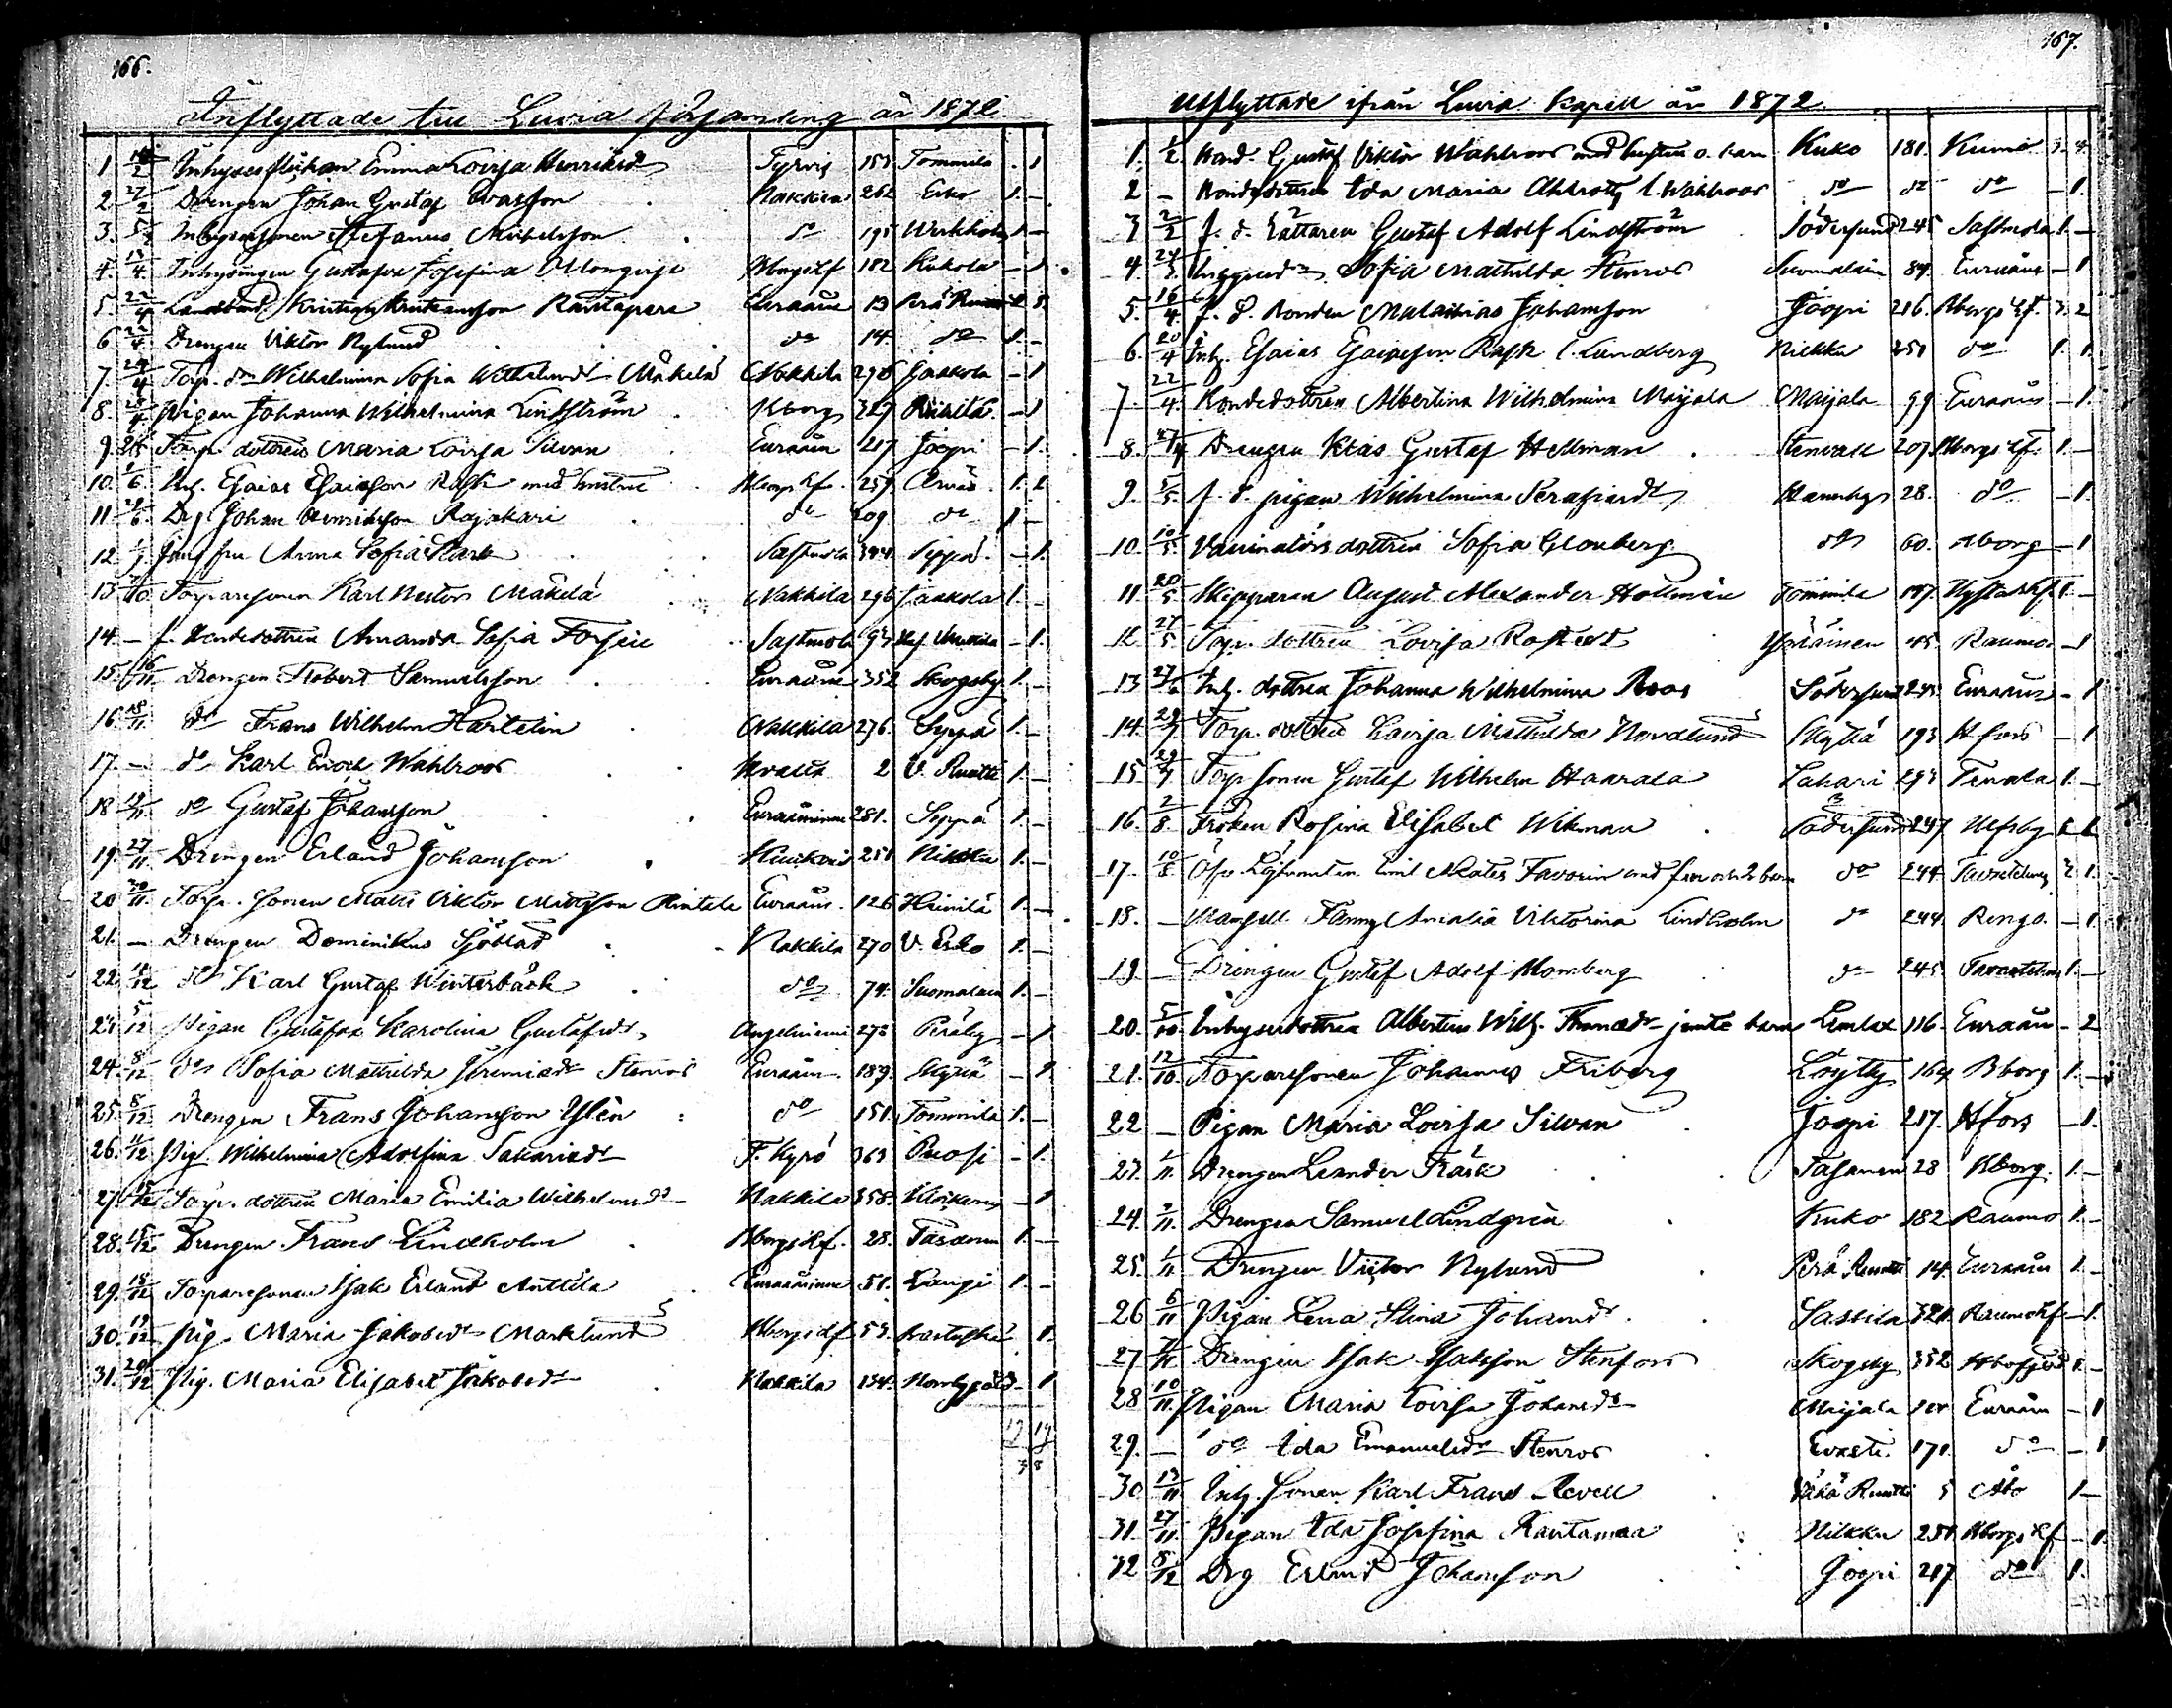 166.
Inflyttade till Luvia församling år 1872.
1 Inhyses flickan Emma Lovisa Henriksdr Tyrvis 153 Tommila . 1
2. 27/2 Drengen Johan Gustaf Ivarsson Nakkila 262 Erko 1. –
3. Inhysessonen Stefanus Mickelsson do 195 1 –
4. Gustafva Josefina Bborgs lf 182 Kukola – 1
5. 22/4 Kristian Kristiansson Rantapere Euraåm 13
6 22/4 Drengen Viktor Nylund do 14 do 1. –
7. 24/4 Torp. dr Wilhelmina Sofia Wilhelmsdr Mäkelä Nakkila 296 Jaakola – 1
8. Pigan Johanna Wilhelmina Lindström Bborg 327 – 1
9. Torp. dottren Maria Lovisa Silvan Euraåm 217 Joopi – 1.
10. Inh. Esaias Esaiasson Rask med hustru Bborgs lf. 259 1. 1
11 Drg Johan Henriksson Rajakari do 209 do 1 –
12. Jungfru Anna Sofia Sastmola 344 Seppä. – 1.
13 Torparesonen Karl Nestor Mäkelä Nakkila 296 Jaakola 1. –
14. – f. Bondedottren Amanda Sofia Forsén Sastmola 93 – 1.
15. 16/11 Drengen Robert Samuelsson Euraåm 352 Skogsby 1. –
16. 18/11 do Frans Wilhelm Hartelin Nakkila 276. Seppä 1. –
17. – do Karl Enoch Wahlroos 2 V. Ruutti 1. –
18 do Gustaf Johansson Euraåminne 281. Seppä 1. –
19. 27/11 Drengen Erland Johansson 251 1. –
20 30/11 Torp. Sonen Matts Viktor Mattsson Rintala Euraåm. 126 Heinilä 1. –
21. – Drengen Dominikus Sjöblad Nakkila 270 V. Erko 1. –
22. do Karl Gustaf Winterbäck do 74. Suomalain 1. –
23 5/12 Pigan Gustafva Karolina Gustafsdr Angelniemi 273 Peräby – 1
24. 8/12 do Sofia Mathilda Jeremiedr Stenros Euraåm. 189. Skyttä – 1
25. 8/12 Drengen Frans Johansson Ylén do 151. Tommila 1. –
26. Pig. Wilhelmina Adolfina Sakariedr T. Kyrö 363 Puosi – 1.
27. Torp. dottren Maria Emilia Wilhelmsdr Nakkila 358. – 1
28. Drengen Frans Lindholm Bborgs lf. 28. Tasanen 1. –
29. Torparesonen Isak Erland Anttila Euraåminne 51. Langi 1. –
30. Pig. Maria Jakobsdr Marklund Bborgs lf 53. 1.
31. 20/12 Pig. Maria Elisabet Jakobsdr Nakkila 134. Norrbygård – 1
19 19
38
167.
Utflyttade ifrån Luvia kapell år 1872.
1. 1/2 Bond. Gustaf Viktor Wahlroos med hustru o. barn Kuko 181. Kumo 3. 4.
2 – Bondedottren Ida Maria Ahlroth l. Wahlroos do do do – 1.
3 2/2 f. d. Rättaren Gustaf Adolf Lindström Södersund 245 Sastmola 1. –
4. 24/3 Sofia Mathilda Stenros Suomalain 84. Euraåm – 1
5. 16/4 f. d. Bonden Malakias Johansson Joopi 216. Bborgs lf. 3. 2
6. 20/4 Inh. Esaias Esaiasson Rask l. Lundberg Nikku 251 do 1. 1.
7. 22/4 Bondedottren Albertina Wilhelmina Maijala Maijala 99 Euraåm – 1.
8. Drengen Klas Gustaf Hellman Stenvall 207 Bborgs lf. 1. –
9. 5/5 f. d. pigan Wilhelmina Serafiasdr 28. do – 1.
10. 10/5 Vaccinatörs dottren Sofia Glouberg do 60. Bborg – 1
11. 20/5 Skepparen August Alexander Hollmén Tommila 147. Nystad 1. –
12 27/5 Torp. dottren Lovisa Rostedt Ypräinen 45. Raumo – 1
13 Inh. dottren Johanna Wilhelmina Roos Södersund 245. Euraåm – 1
14. Torp. dottren Lovisa Mathilda Nordlund Skyttä 193 Hfors – 1
15. Torp. Sonen Gustaf Wilhelm Haarala Lahari 293 Tenala 1. –
16. 2/8. Fröken Rosina Elisabet Wikman Södersund 247 Ulfsby
17. 10/8 Emil Favorin med fru och 2 barn do 244 Tavastehus 3 1.
18. – Mamsell Fanny Amalia Viktorina Lindholm do 244. Rengo. – 1.
19. – Drengen Gustaf Adolf Blomberg do 245. Tavastehus 1. –
20. 5/10 Inhysesdottren Albertina Wilh. Thomasdr jemte barn Lemlax 116. Euraåm – 2
21. 12/10. Torparesonen Johannes Friberg Löytty 164 Bborg 1. –
22 – Pigan Maria Lovisa Silvan Joopi 217. Hfors – 1.
23. 1/11. Drengen Leander Träsk Tasanen 28 Bborg. 1. –
24. 2/11. Drengen Samuel Lindgren Kuko 182 Raumo 1. –
25. 1/11 Drengen Viktor Nylund Perä Ruutti 14. Euraåm 1. –
26 6/11 Pigan Lena Stina Johansdr Sassila 321. Raumo lf – 1.
27 Drengen Isak Isaksson Stenfors Skogsby 352 1. –
28 10/11. Pigan Maria Lovisa Johansdr Maijala Euraåm – 1
29. – do Ida Emanuelsdr Stenros Evasti. 171. do – 1
30 13/11 Inh. sonen Karl Frans Revell Vähä Ruutti 5 Åbo 1 –
31. 27/11. Pigan Ida Josefina Rantamaa Nikku 251. Bborgs lf – 1.
32 8/12 Drg Erland Johansson Joopi 217 do 1.